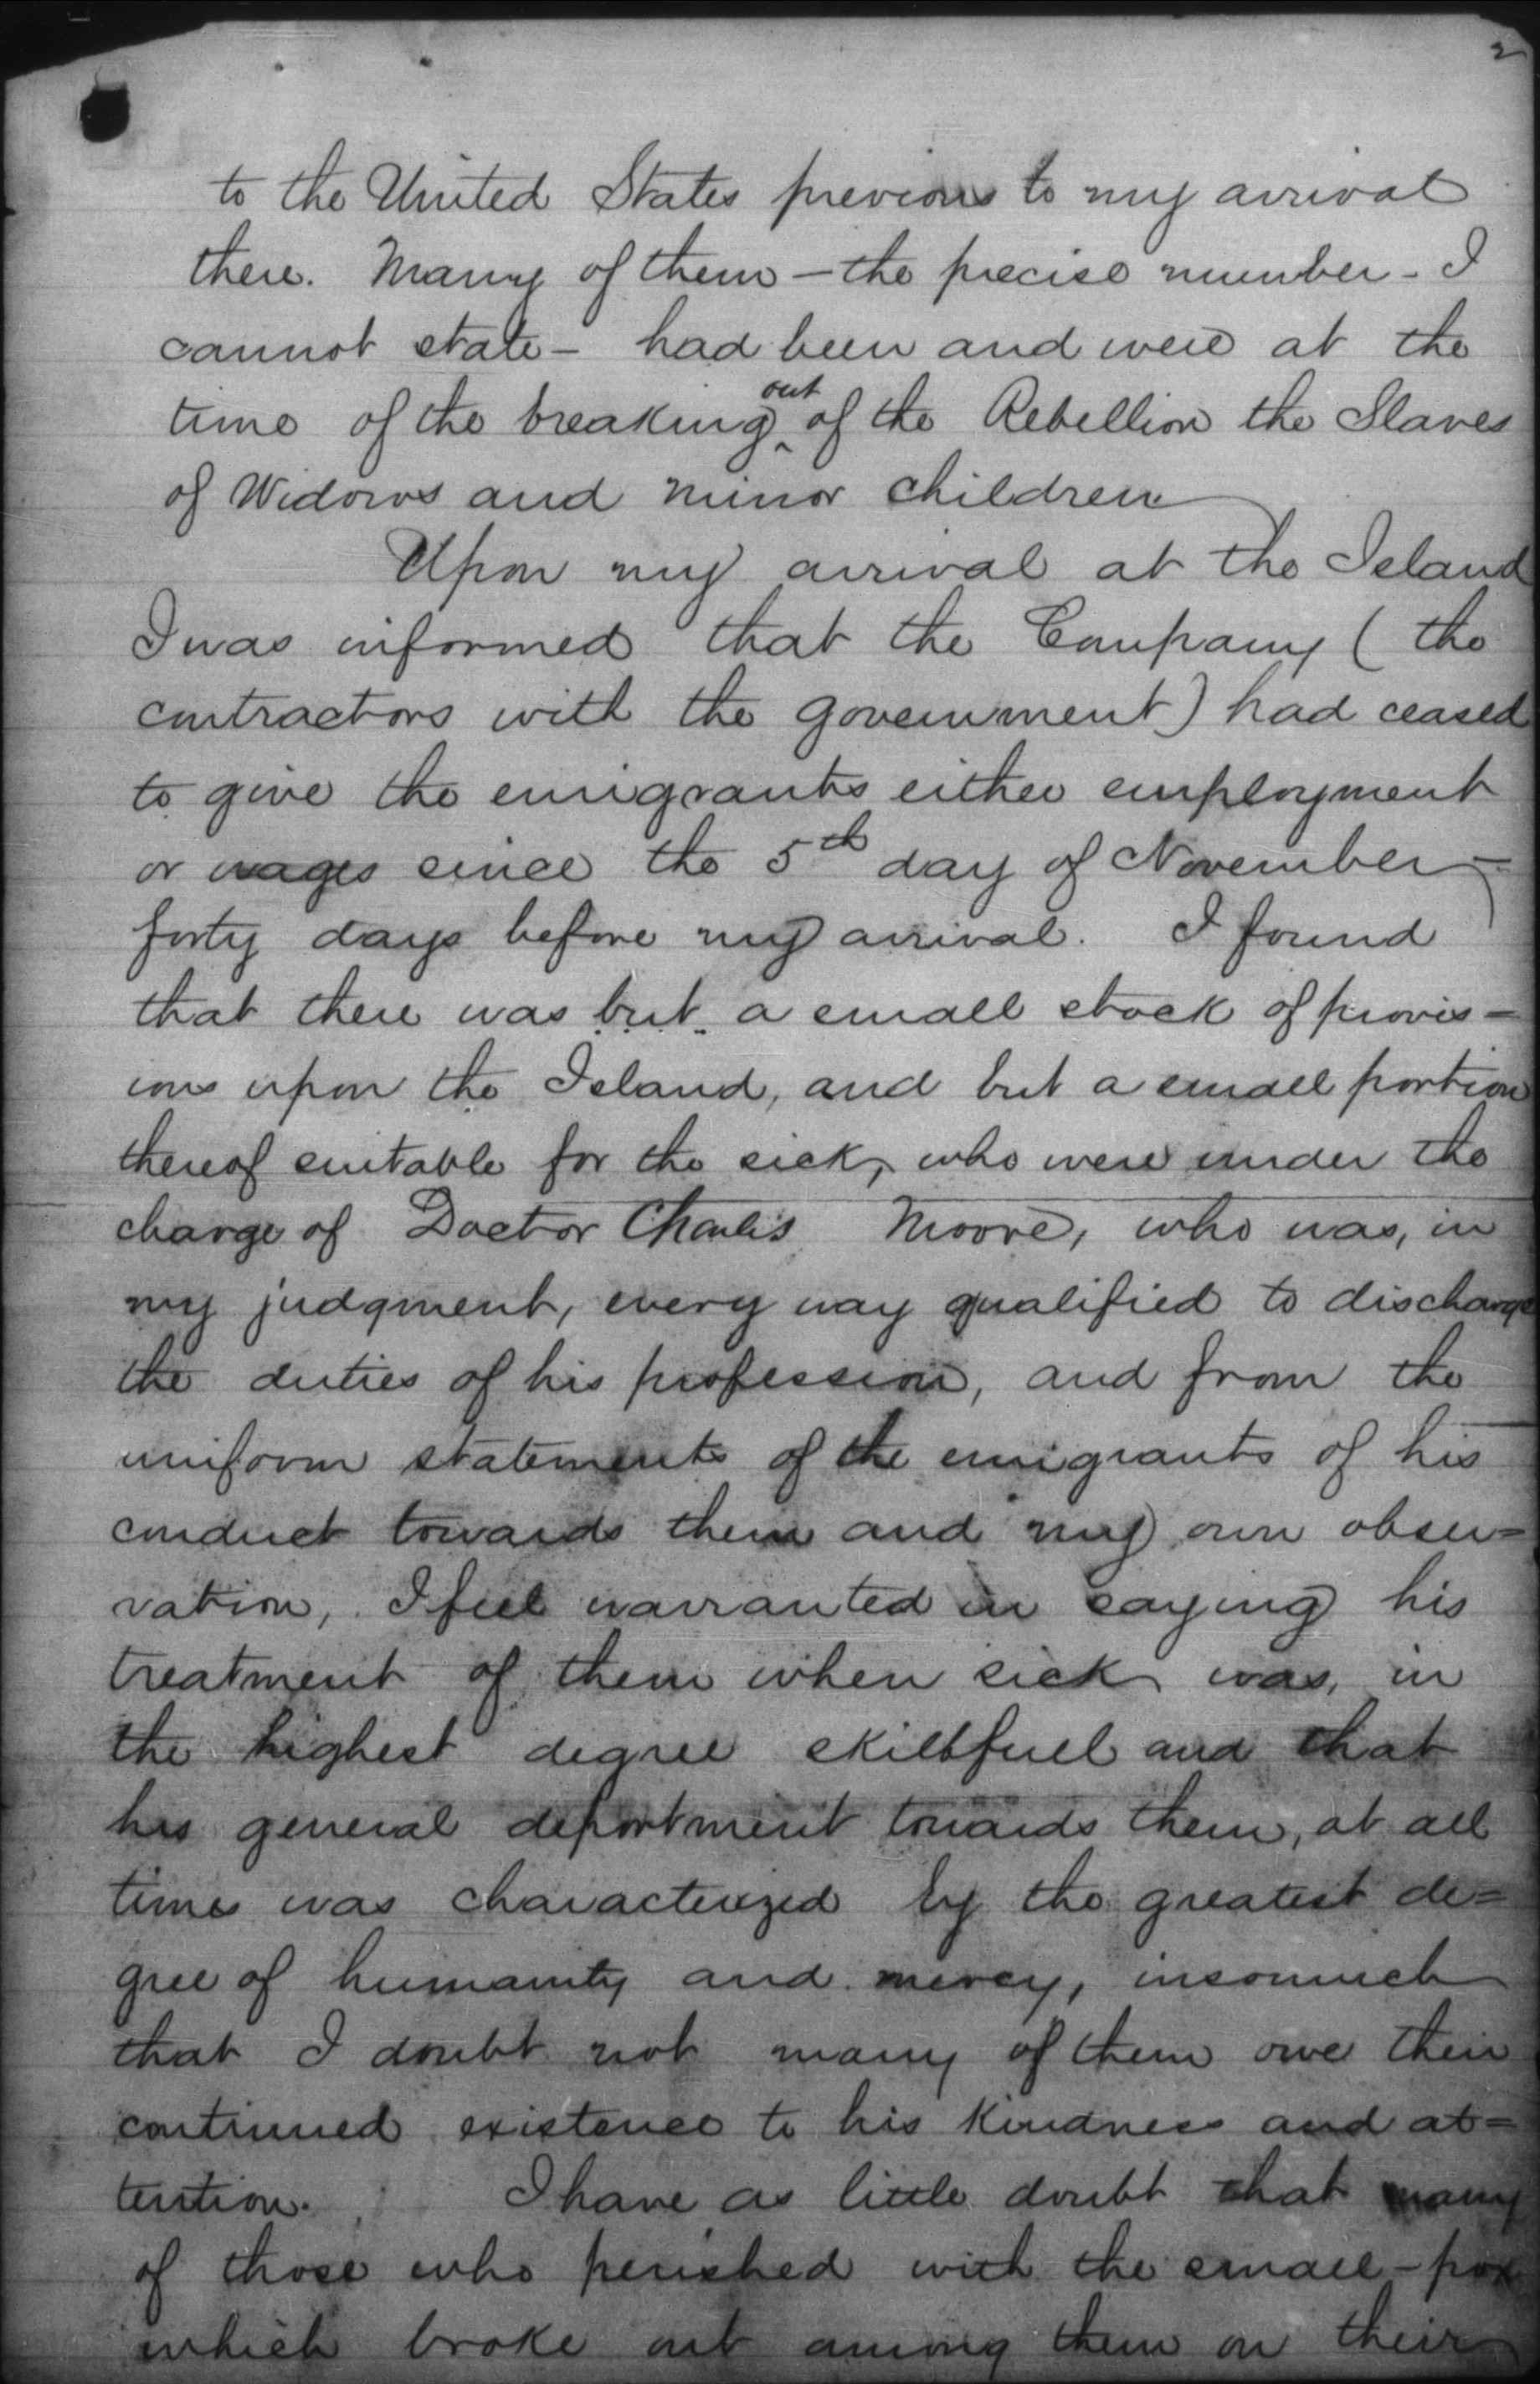 2
to the United States previous to my arrival
there. Many of them — the precise number - I
cannot state - had been and were at the
time of the breaking out of the Rebellion the Slaves
of Widows and minor children
Upon my arrival at the Island
I was informed that the Company (the
contractors with the government) had ceased
to give the emigrants either employment
or wages since the 5th day of November -
forty days before my arrival. I found
that there was but a small stock of provis=
ions upon the Island, and but a small portion
thereof suitable for the sick, who were under the
charge of Doctor Charles Moore, who was, in
my judgment, every way qualified to discharge
the duties of his profession, and from the
uniform statements of the emigrants of his
conduct towards them and my own obser=
vation, I feel warranted in saying his
treatment of them when sick was, in
the highest degree skillfull and that
his general deportment towards them, at all
times was characterized by the greatest de=
gree of humanity and mercy, insomuch
that I doubt not many of them owe their
continued existence to his kindness and at=
tention. I have as little doubt that many
of those who perished with the small-pox
which broke out among them on their